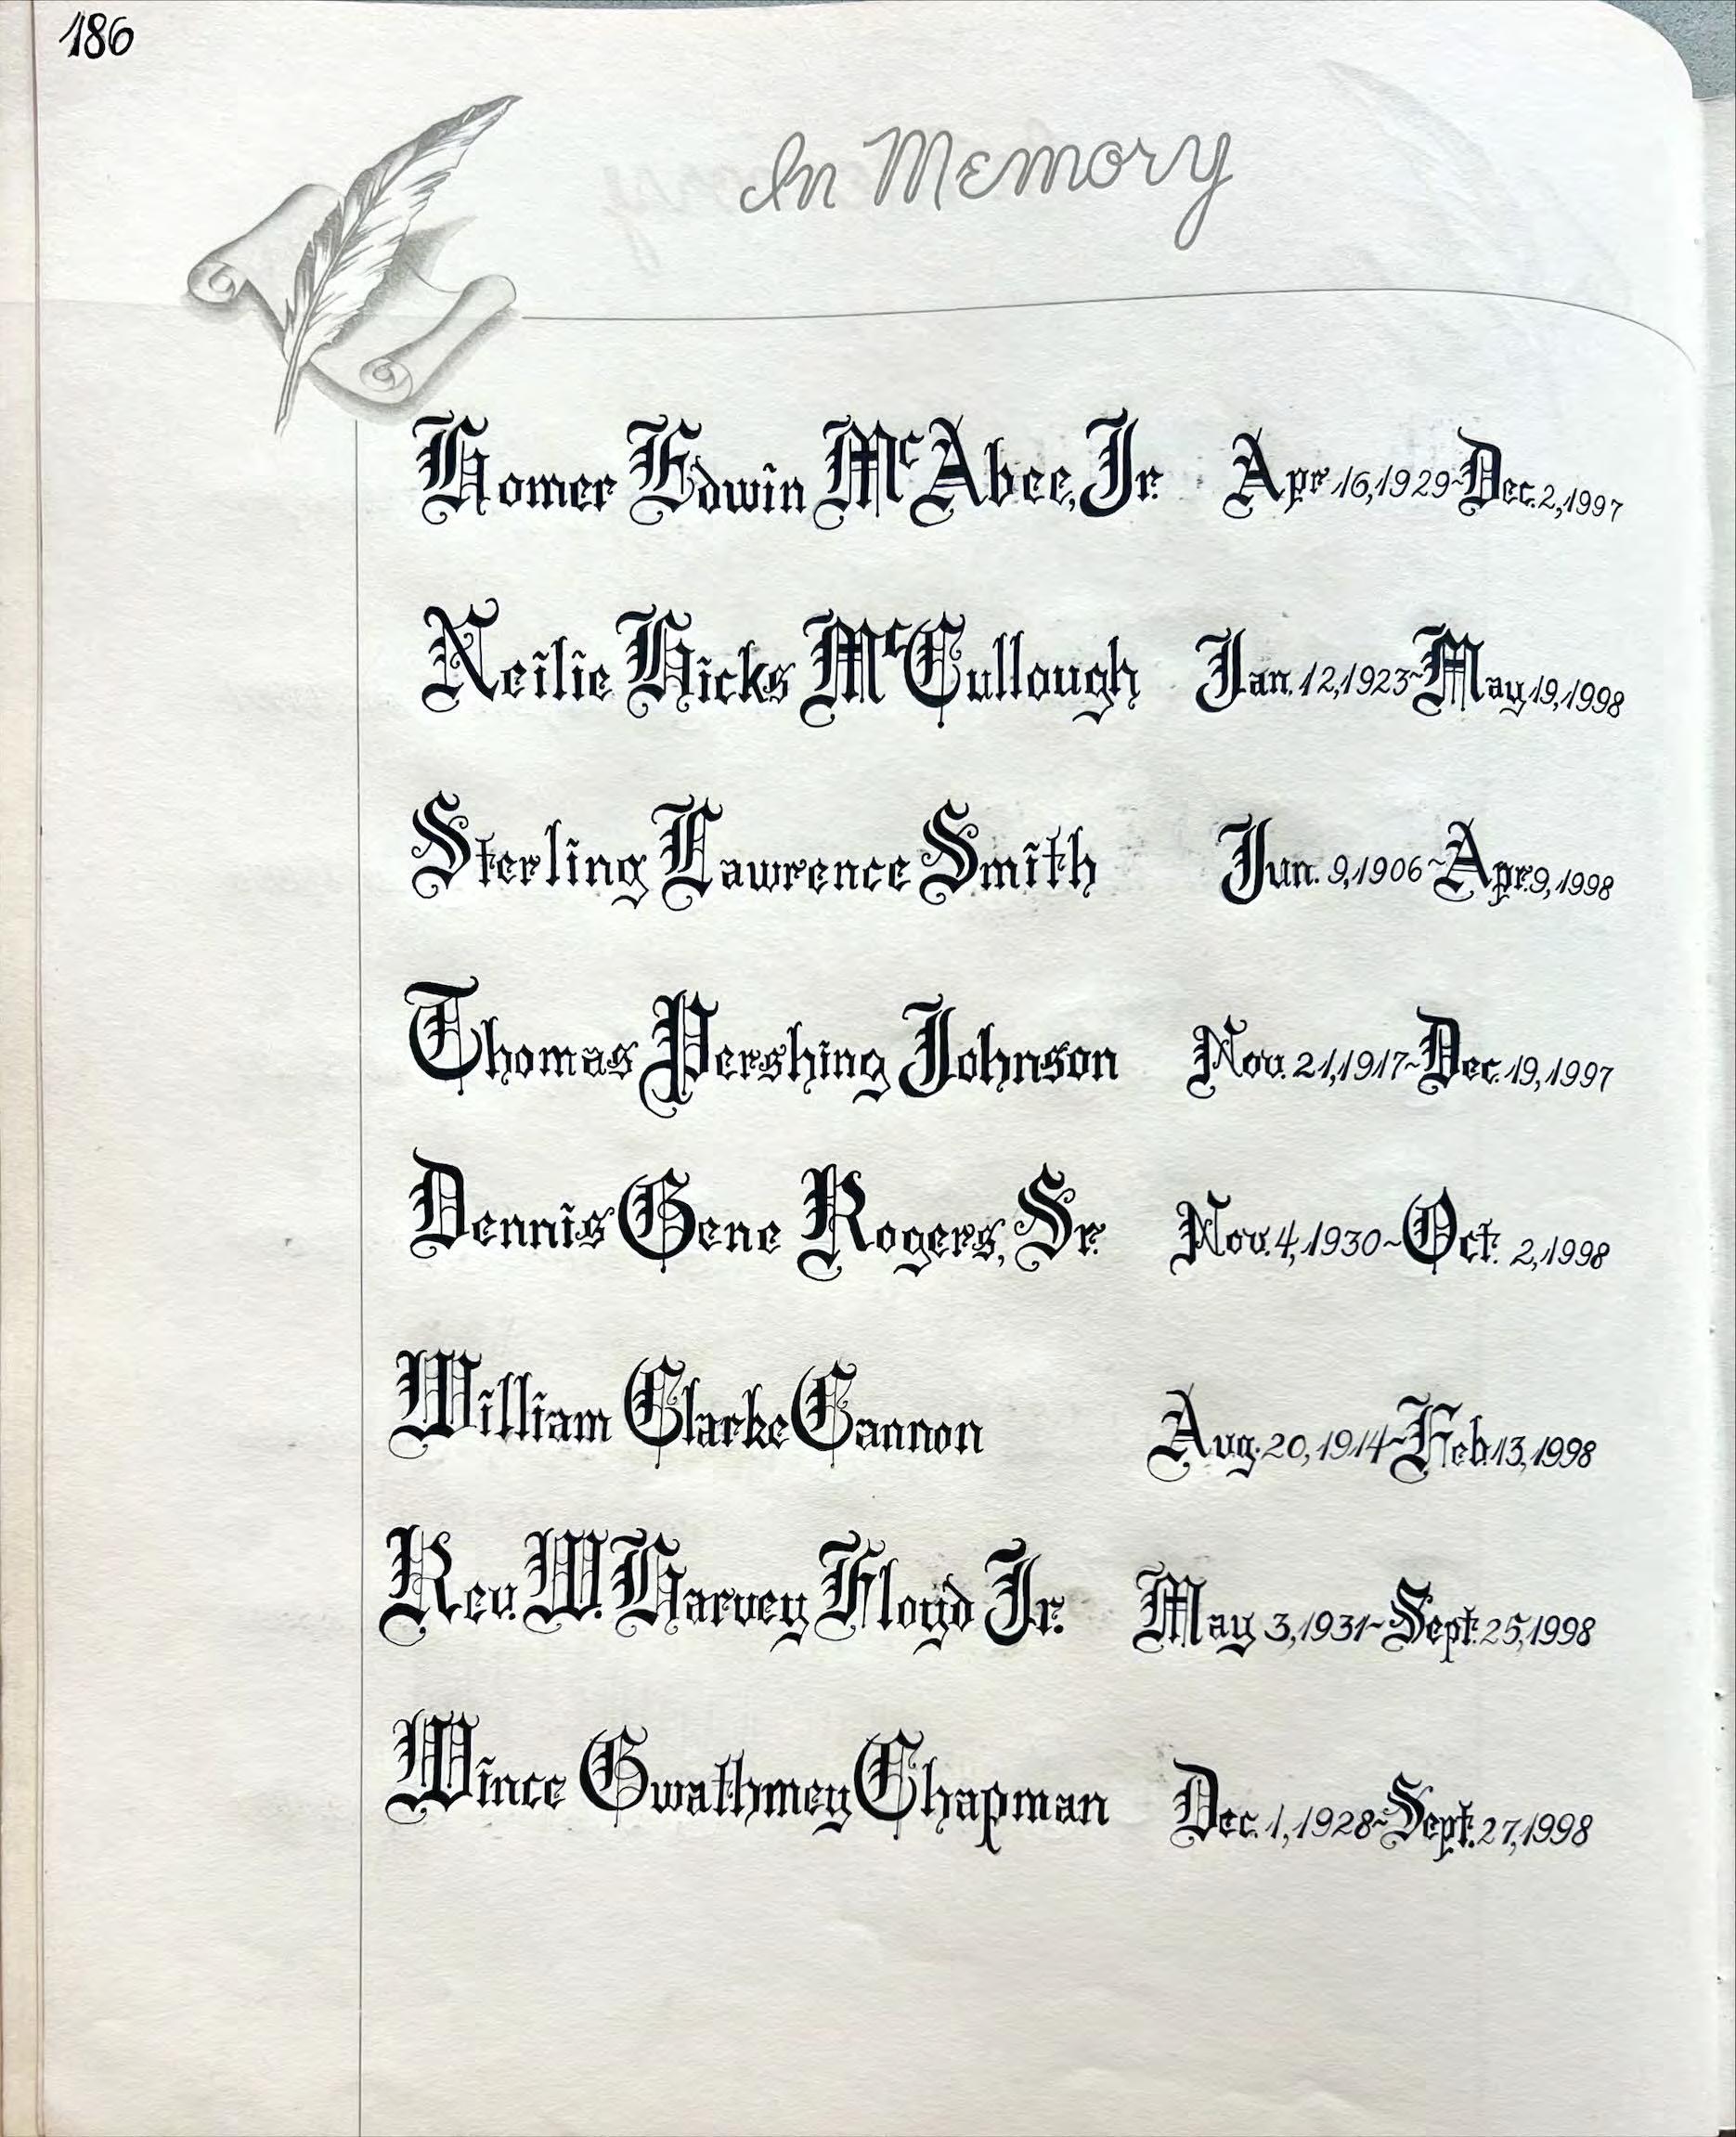 186
In Memory
Homer Edwin McAbee, Jr. Apr 16, 1929~Dec. 2, 1997
Neilie Hicks McCullough Jan. 12, 1923~May 19, 1998
Sterling Lawrence Smith Jun. 9, 1906~Apr. 9, 1998
Thomas Pershing Johnson Nov. 21, 1917~Dec. 19, 1997
Dennis Gene Rogers, Sr. Nov. 4, 1930~Oct. 2, 1998
William Clarke Cannon Aug. 20, 1914~Feb. 13, 1998
Rev. W. Harvey Floyd Jr. May 3, 1931~Sept. 25, 1998
Wince Gwathmey Chapman Dec. 1, 1928~Sept. 27, 1998